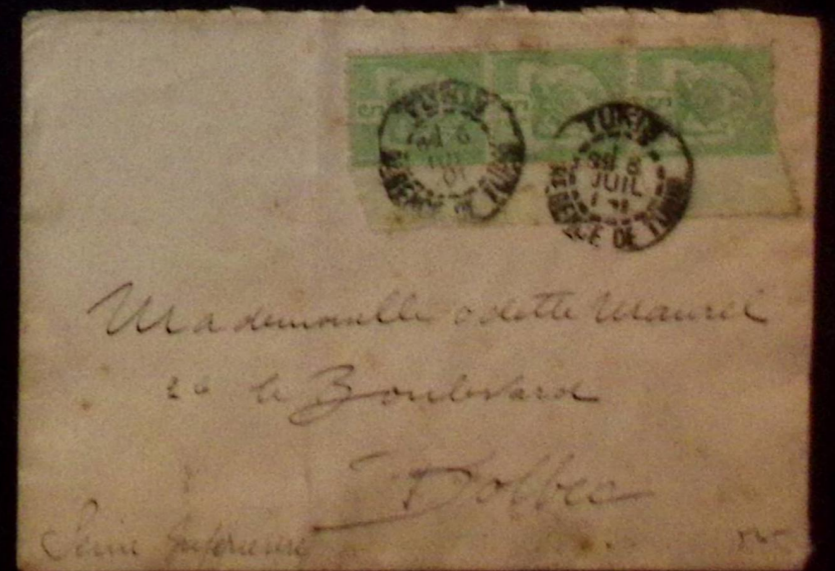 5 5 5
TUNIS
6
JUIL
01
REGENCE DE TUNIS
TUNIS
6
JUIL
REGENCE DE TUNIS
Mademoiselle Odette Maurel
le Boulevard
Bolbec
Seine Inférieure